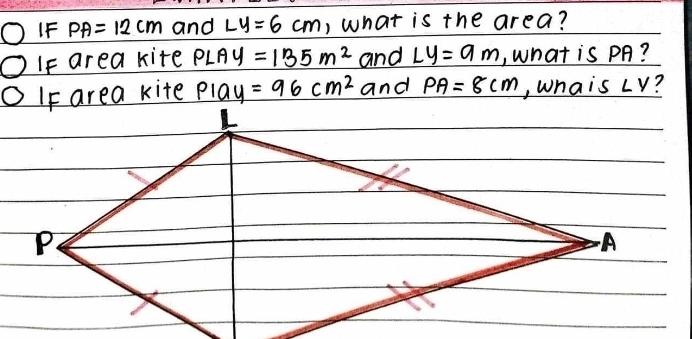 IF PA = 12 cm and LY = 6 cm, what is the area?
IF area kite PLAY = 135 m² and LY = 9 m, what is PA?
IF area kite Play = 96 cm² and PA = 8 cm, whais LY?
L
P
A